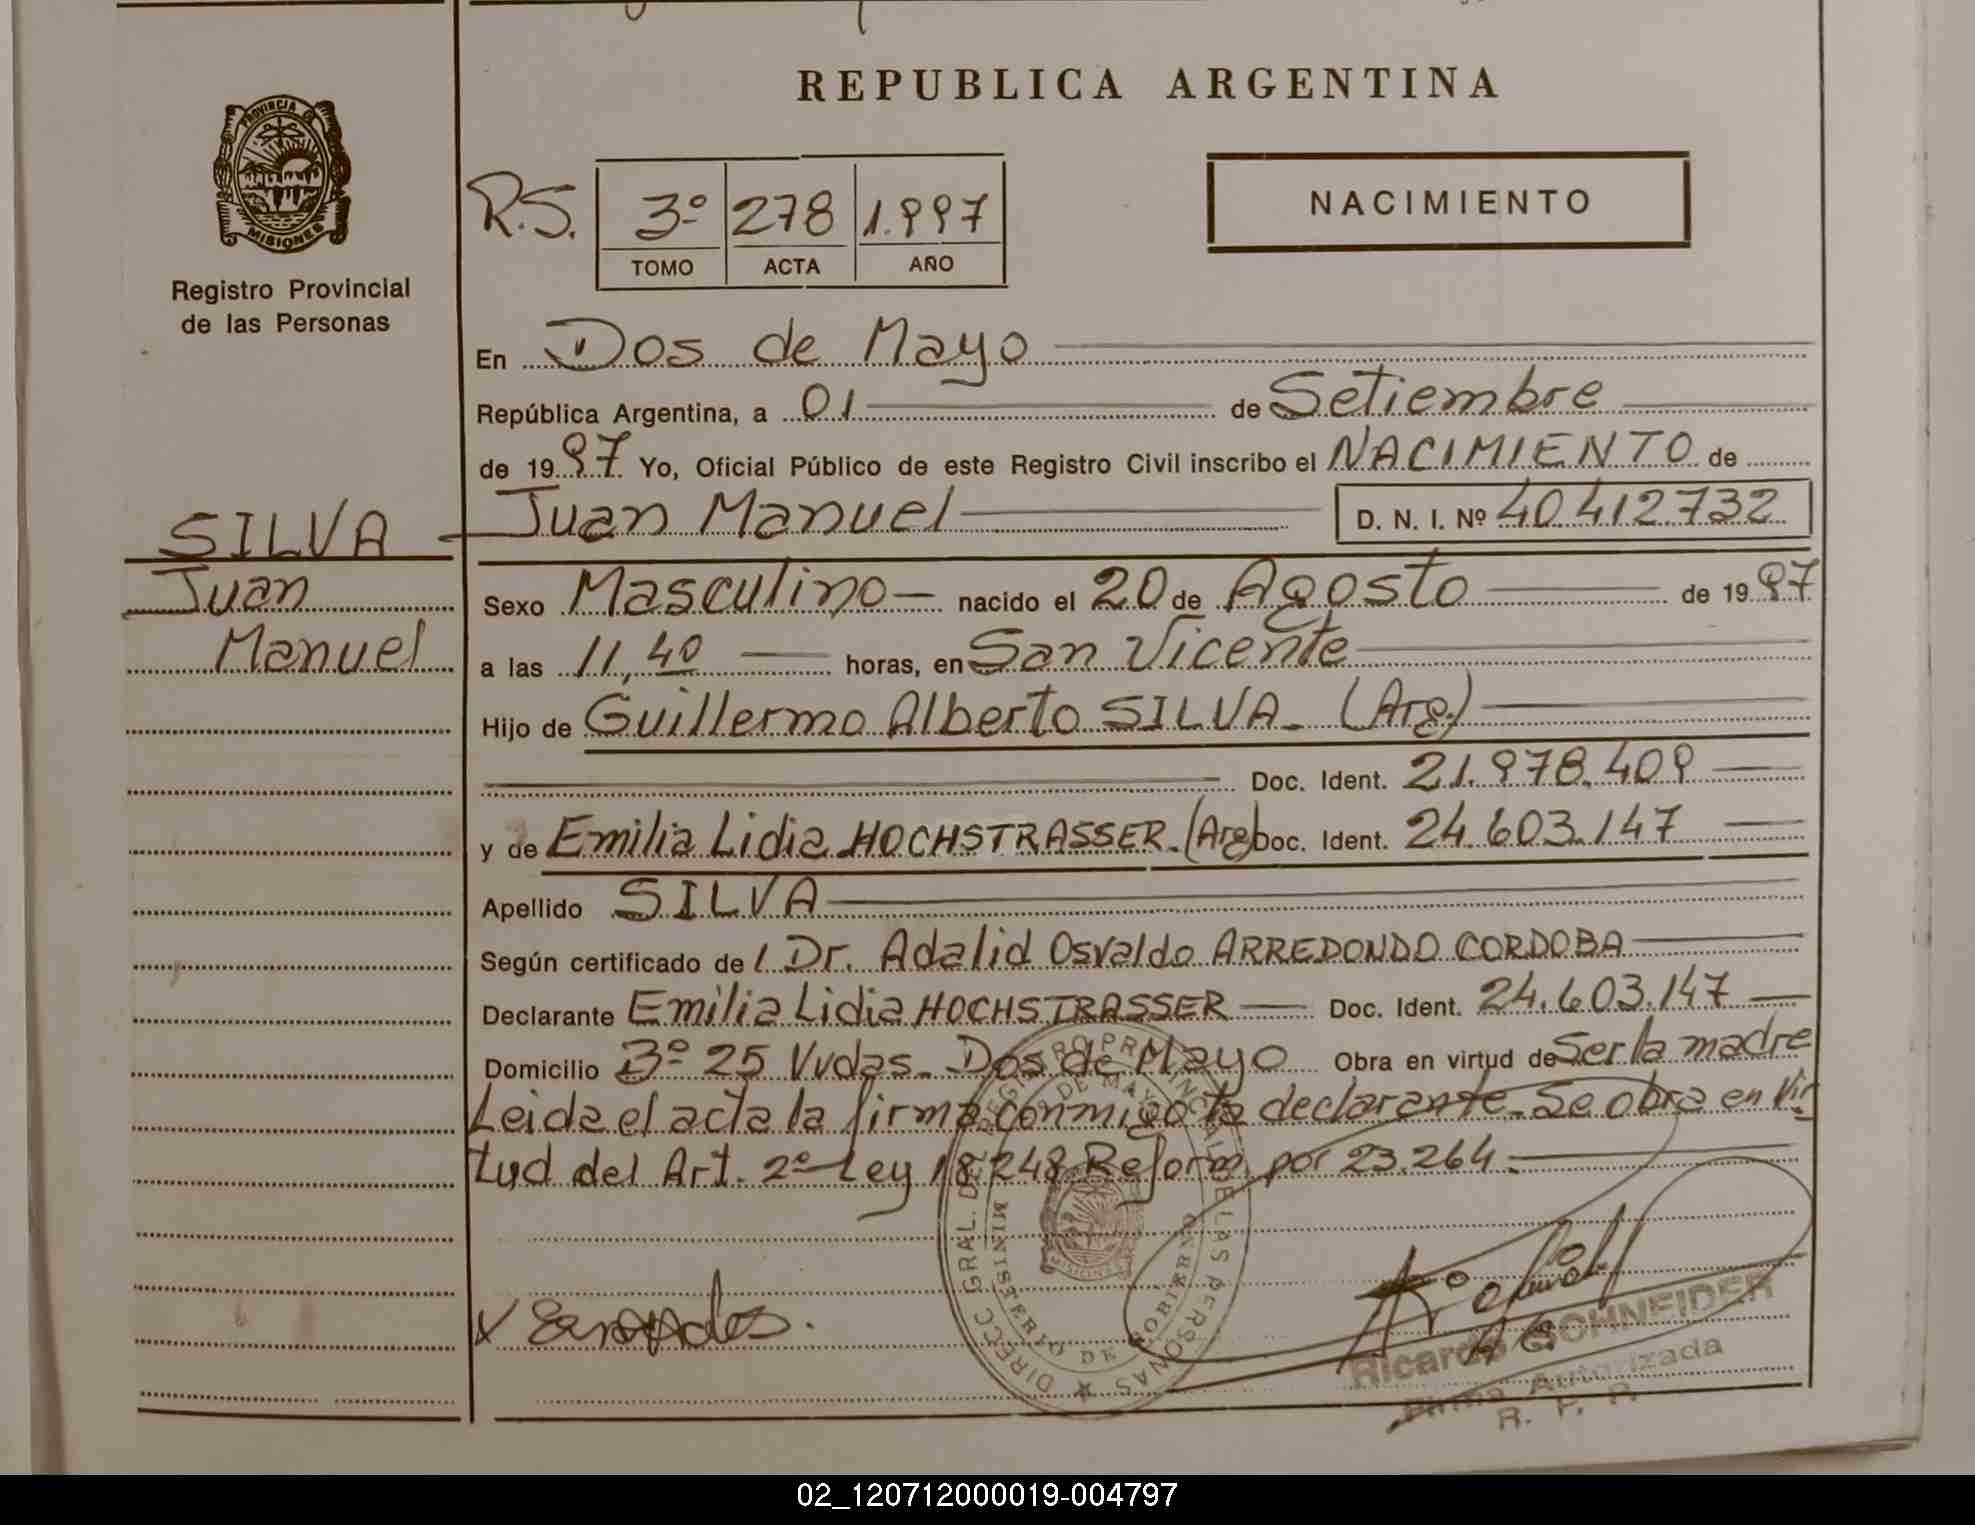 REPUBLICA ARGENTINA
PROVINCIA
MISIONES
Registro Provincial
de las Personas
R.S. 3º 278 1.997
TOMO ACTA AÑO
NACIMIENTO
En Dos de Mayo
República Argentina, a 01 de Setiembre
de 19 97 Yo, Oficial Público de este Registro Civil inscribo el NACIMIENTO de
SILVA
Juan
Manuel
Juan Manuel D. N. I. Nº 40 412.732
Sexo Masculino nacido el 20 de Agosto de 19 97
a las 11,40 horas, en San Vicente
Hijo de Guillermo Alberto SILVA. (Arg.)
Doc. Ident. 21.978.409
y de Emilia Lidia HOCHSTRASSER. (Arg) Doc. Ident. 24.603.147
Apellido SILVA
Según certificado del Dr. Adalid Osvaldo ARREDONDO CORDOBA
Declarante Emilia Lidia HOCHSTRASSER Doc. Ident. 24.603.147
Domicilio Bº 25 Vvdas. Dos de Mayo Obra en virtud de Ser la madre
Leida el acta la firma conmigo la declarante. Se obra en Vir
tud del Art. 2º Ley 18.248 Reform. por 23.264.
DIRECC. GRAL. DEL REGISTRO PROVINCIAL DE LAS PERSONAS
DOS DE MAYO
MINISTERIO DE GOBIERNO
MISIONES
Ricardo SCHNEIDER
Firma Autorizada
R. P. P.
02_120712000019-004797